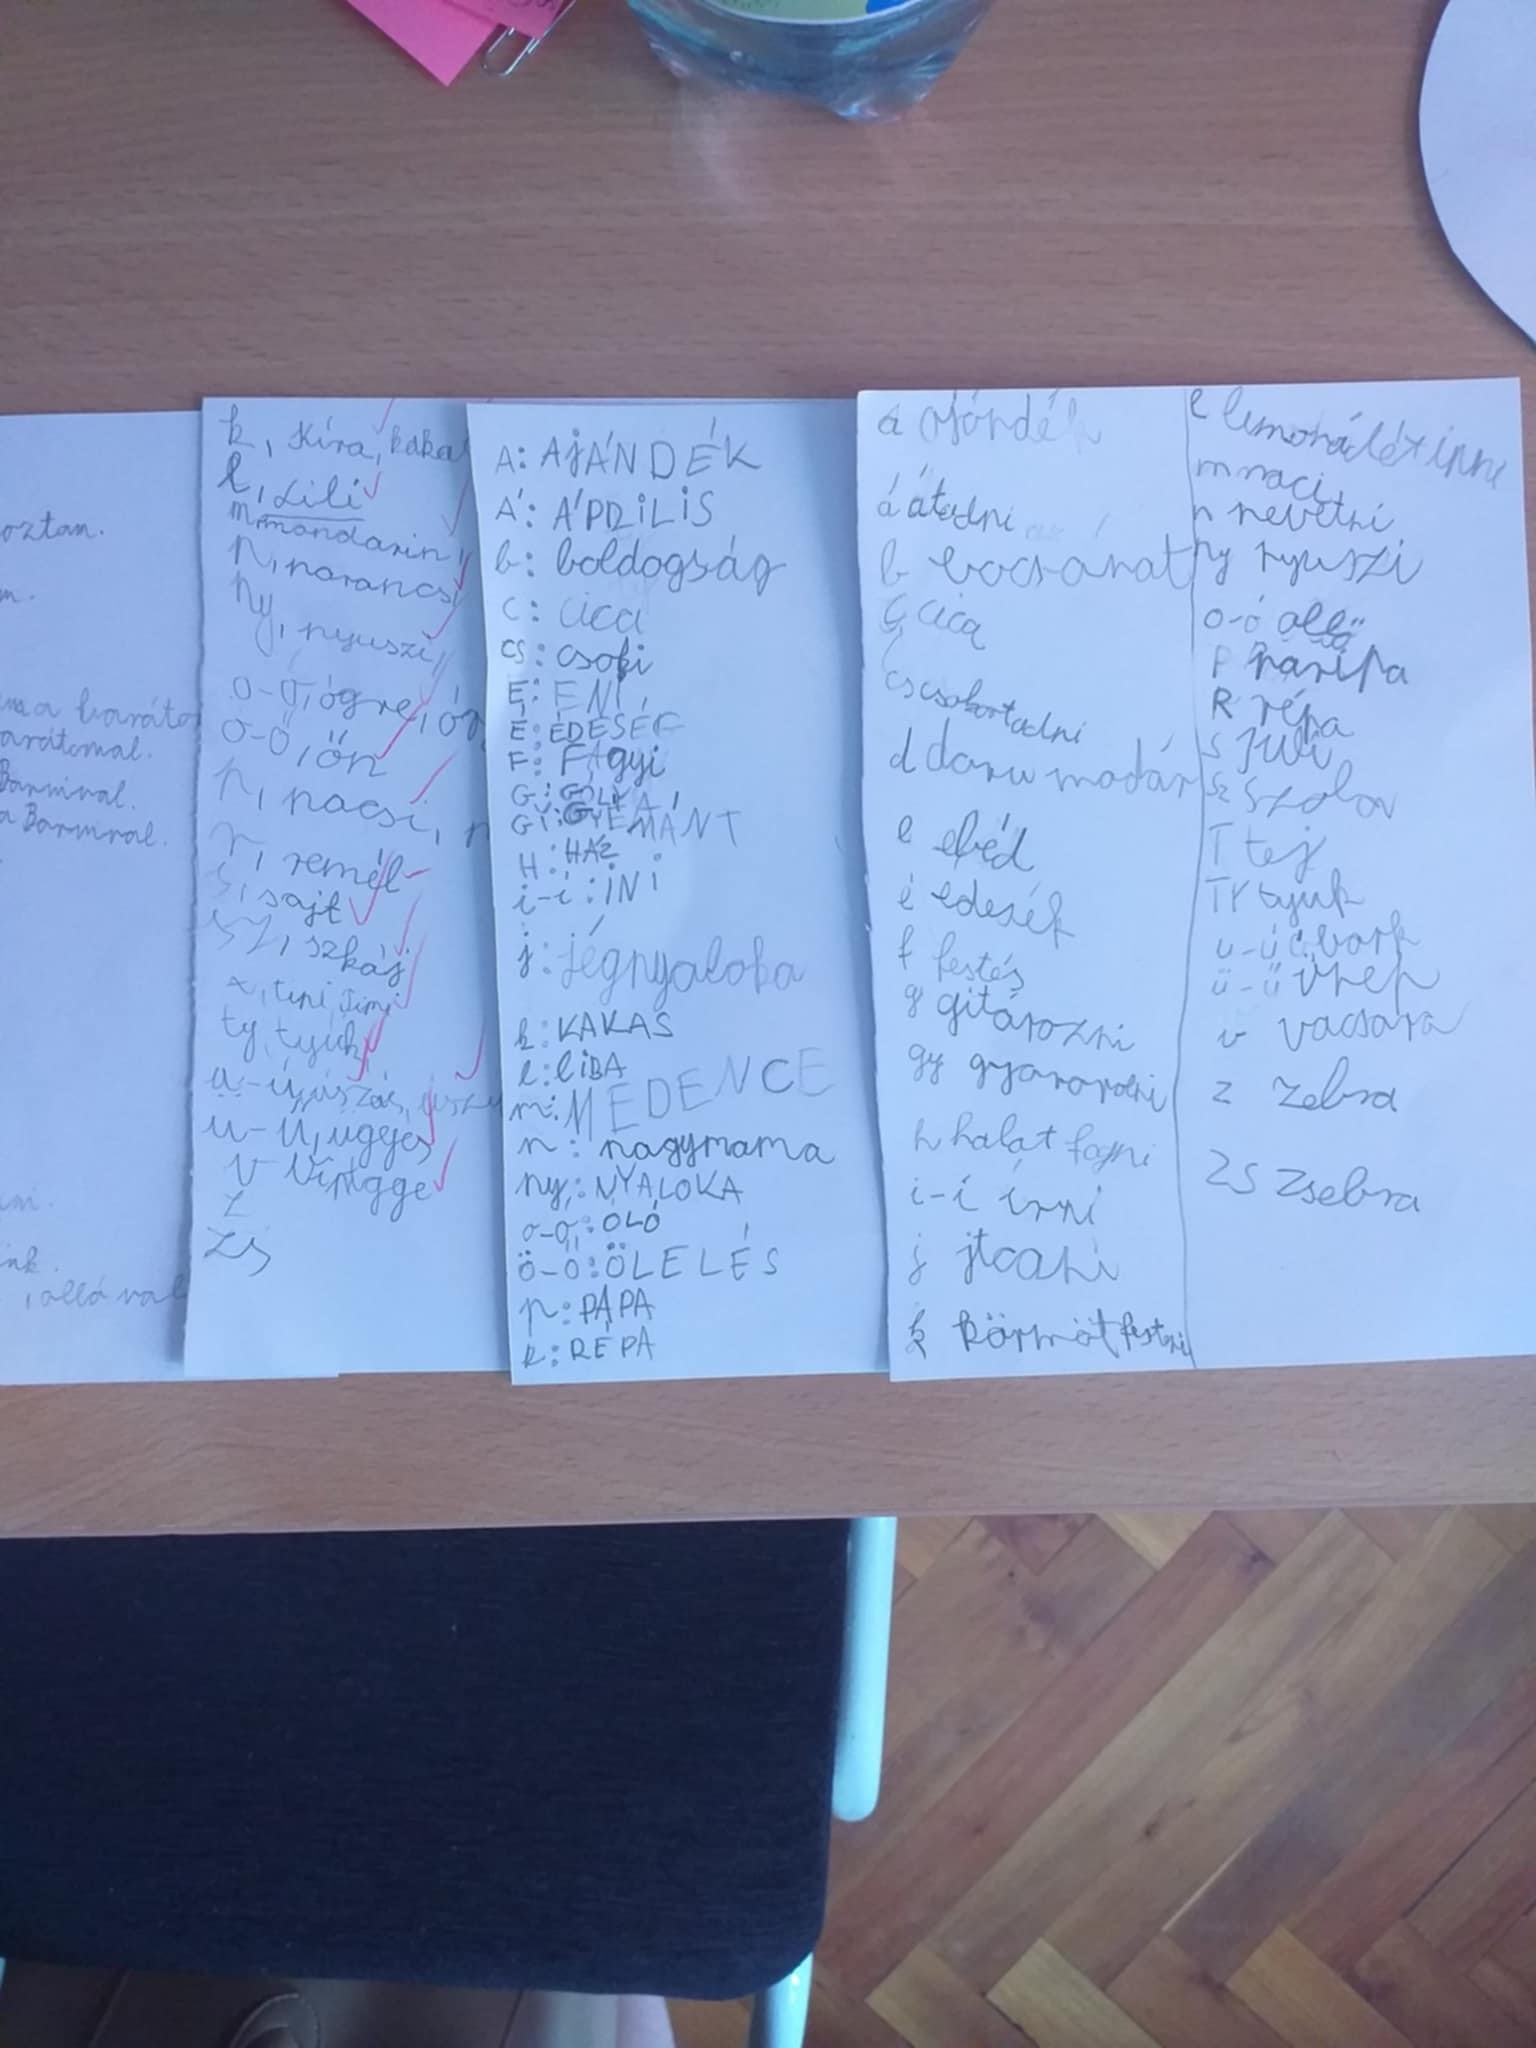 oztam.
m.
ma baráto
arátomal.
Barmival.
a Barmival.
mi.
ink.
, olló val
k, Kíra, kaka
l, Lili
m, mandarin,
n, narancs,
ny, nyuszi,
o-ó, ógre, óg
ö-ő, ön
p, pacsi, p
r, remél
s, sajt
sz, szkáj
t, tini, Timi
ty, tyúk,
u-ú, úszás, úszu
ü-ű, ügyes
v
z
zs
A: AjÁNDÉK
Á: ÁPRILIS
b: boldogság
c: cica
cs: csoki
E: ENI
É: ÉDESÉG
F: FAgyi
G: GOLYÓ
GY: GYÉMÁNT
H: HÁZ
i-í: ÍNI
j: jégnyaloka
k: KAKAS
l: LIBA
m: MEDENCE
n: nagymama
ny: NYALOKA
o-ó: OLÓ
ö-ő: ÖLELÉS
p: PÁPA
R: RÉPA
a ajándék
á átadni
b bocsánat
c cica
cs csokortadni
d daru madár
e ebéd
é edesék
f festés
g gitározni
gy gyararodni
h halat fogni
i-í írni
j jtcani
k körmöt festni
l limonádét inni
m maci
n nevetni
ny nyuszi
o-ó olló
P paripa
R répa
S JuLi
sz szolov
T tej
TY tyuk
u-ú
ü-ű ünep
v vacsara
z zebra
ZS Zsebra